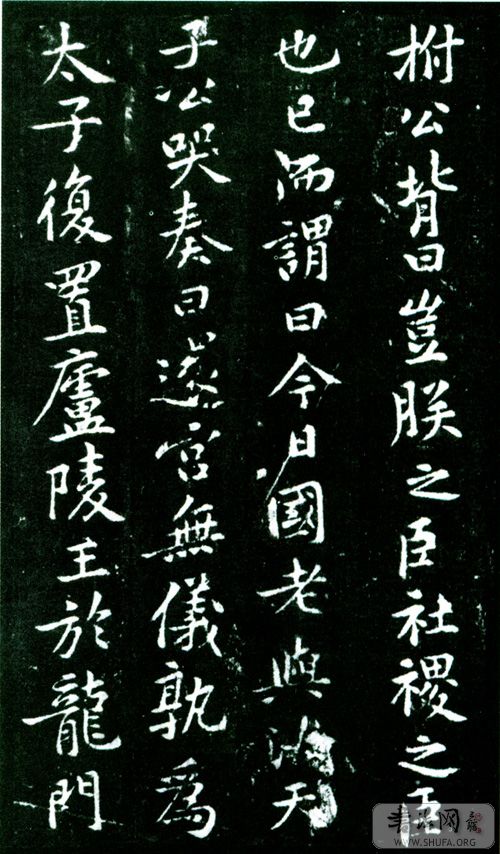 拊公背曰豈朕之臣社稷之臣
也已而謂曰今日國老與汝天
子公哭奏曰還宮無儀孰爲
太子復置廬陵王於龍門
书法网
WWW.SHUFA.ORG